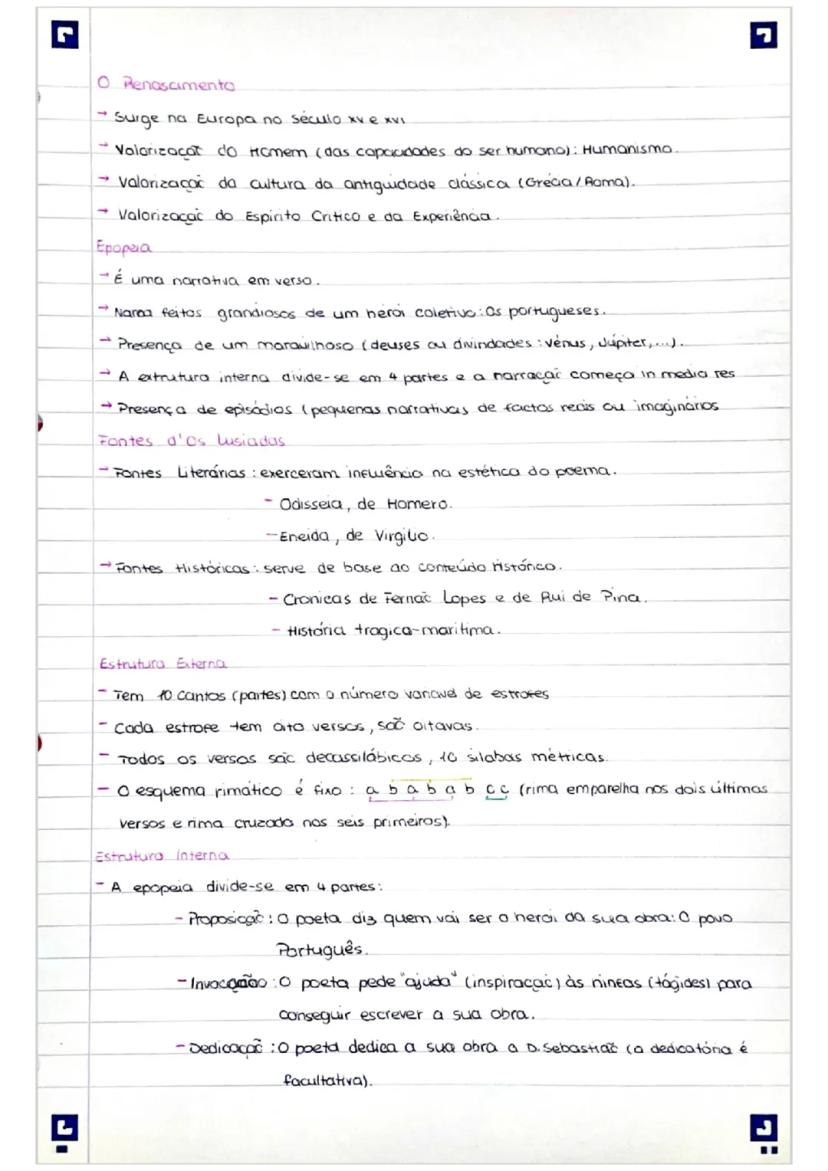 O Renascimento
→ Surge na Europa no século XV e XVI
→ Valorização do Homem (das capacidades do ser humano): Humanismo.
→ Valorização da cultura da antiguidade clássica (Grécia/Roma).
→ Valorização do Espirito Critico e da Experiência.
Epopeia
→ É uma narrativa em verso.
→ Narra feitos grandiosos de um herói coletivo: Os portugueses.
→ Presença de um maravilhoso (deuses ou divindades: vénus, Júpiter,...).
→ A estrutura interna divide-se em 4 partes e a narração começa in media res
→ Presença de episódios (pequenas narrativas de factos reais ou imaginários
Fontes d'Os Lusiadas
- Fontes Literárias: exerceram influência na estética do poema.
- Odisseia, de Homero.
- Eneida, de Virgílio.
→ Fontes Históricas: serve de base ao conteúdo histórico.
- Cronicas de Fernão Lopes e de Rui de Pina.
- História tragica-maritima.
Estrutura Externa
- Tem 10 cantos (partes) com o número variavel de estrofes
- Cada estrofe tem oito versos, são oitavas.
- Todos os versos são decassilábicos, 10 silabas métricas.
- O esquema rimático é fixo: a b a b a b c c (rima emparelha nos dois últimos
versos e rima cruzada nos seis primeiros).
Estrutura interna
- A epopeia divide-se em 4 partes:
- Proposição: O poeta diz quem vai ser o herói da sua obra: O povo
Português.
- Invocação: O poeta pede "ajuda" (inspiração) às ninfas (tágides) para
conseguir escrever a sua obra.
- Dedicação: O poeta dedica a sua obra a D. Sebastião (a dedicatória é
facultativa).